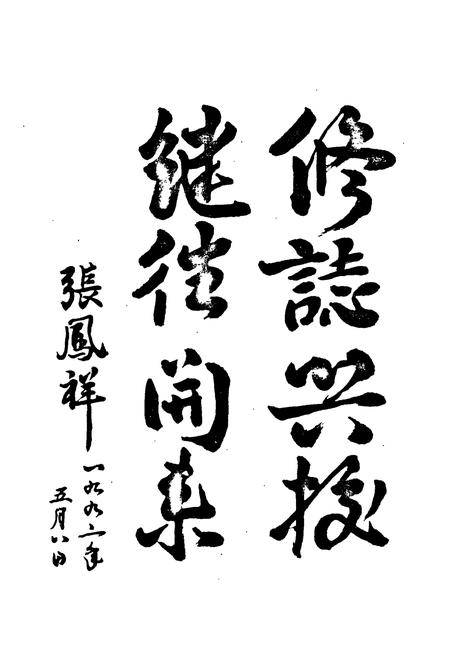 修誌興校
继往開来
張鳳祥
一九九二年
五月八日